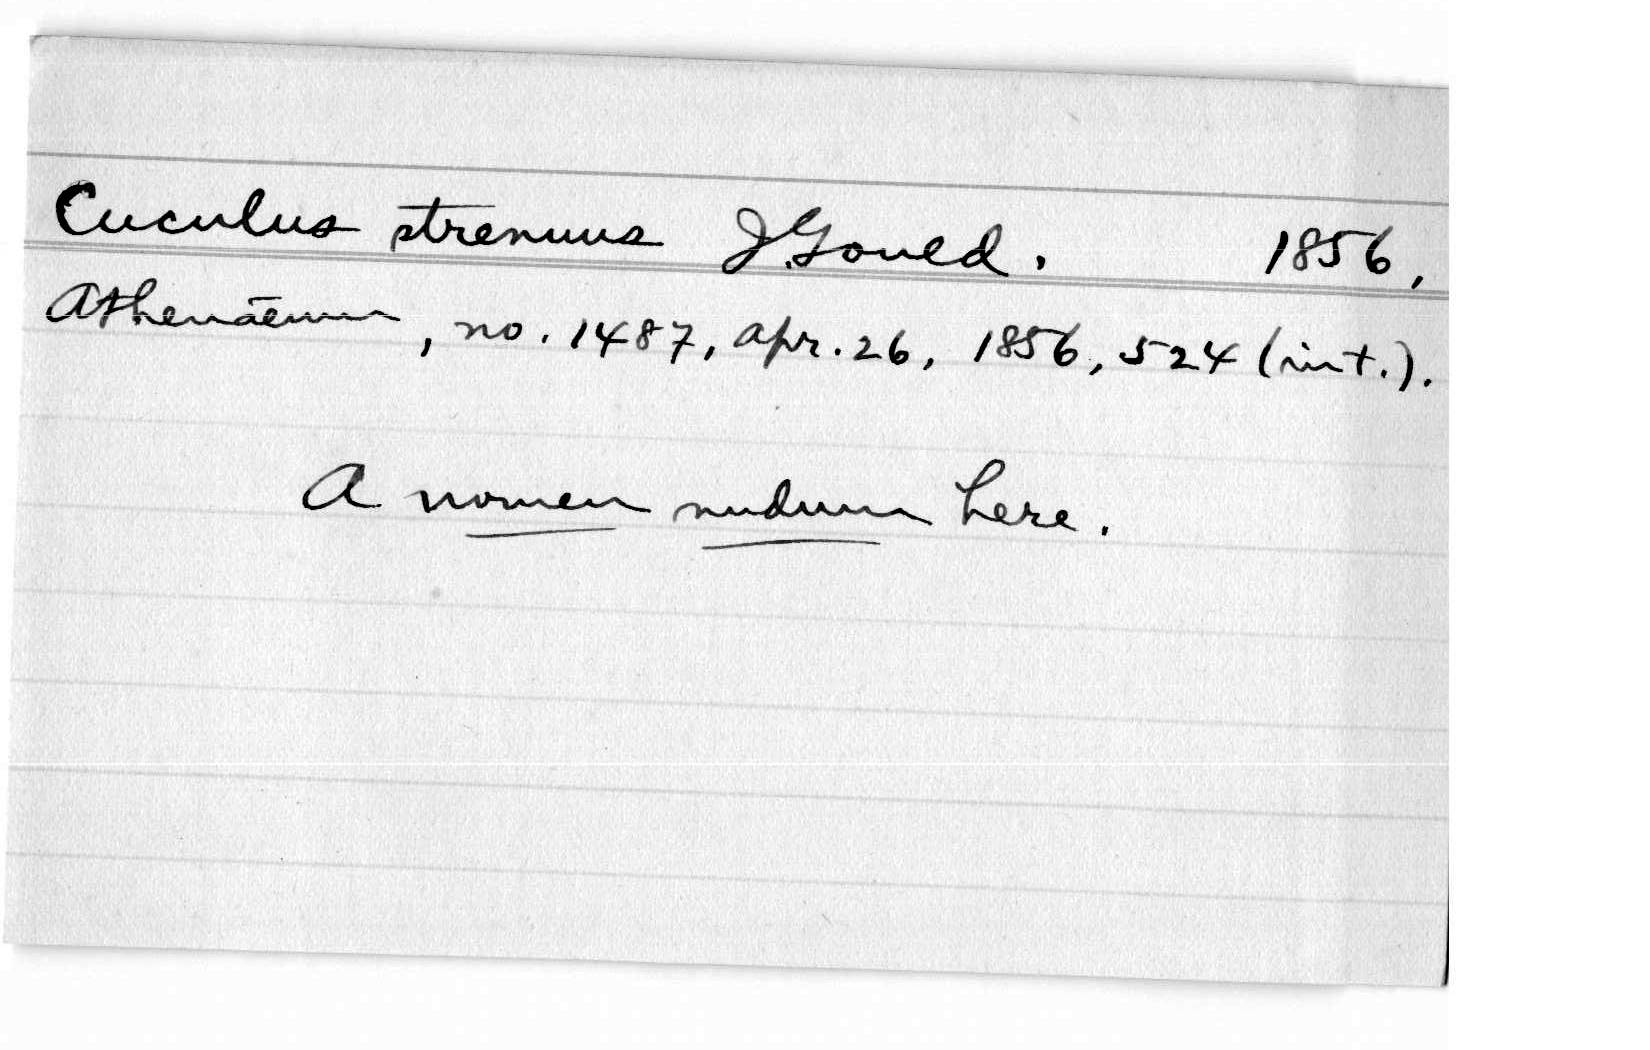 Cuculus strenuus J. Gould. 1856,
Athenāeum, no. 1487, Apr. 26, 1856, 524 (int.).
A nomen nudum here.